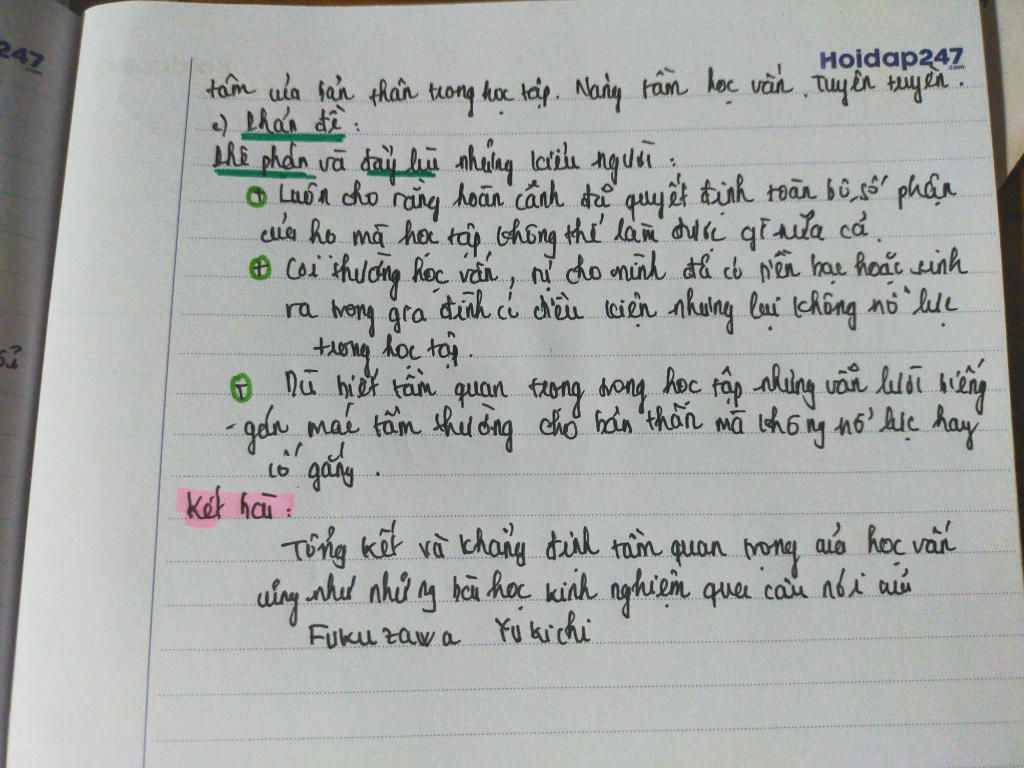 247
.com
Hoidap247
.com
tầm của bản thân trong học tập. Nâng tầm học vấn.
c) Phản đề:
Phê phán và đẩy lùi những kiểu người:
+ Luôn cho rằng hoàn cảnh đã quyết định toàn bộ số phận
của họ mà học tập không thể làm được gì nữa cả.
+ Coi thường học vấn, tự cho mình đã có tiền bạc hoặc sinh
ra trong gia đình có điều kiện nhưng lại không nỗ lực
trong học tập.
+ Dù biết tầm quan trọng trong học tập nhưng vẫn lười biếng
- gắn mác tầm thường cho bản thân mà không nỗ lực hay
cố gắng.
Kết bài:
Tổng kết và khẳng định tầm quan trọng của học vấn
cũng như những bài học kinh nghiệm qua câu nói của
Fukuzawa Yukichi